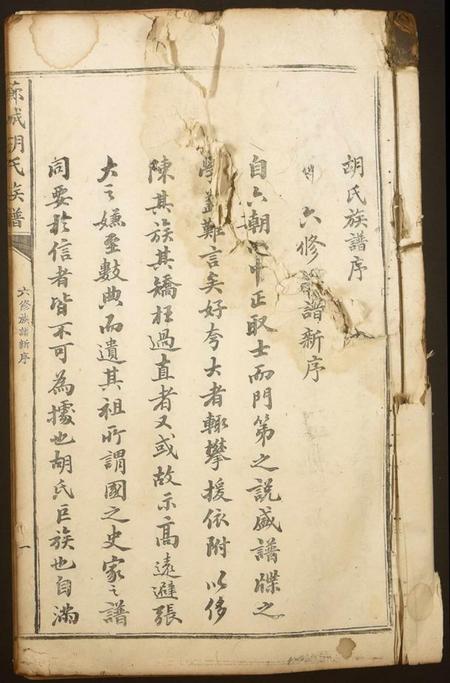 胡氏族譜序
六修族譜新序
自六朝以中正取士而門第之說盛譜牒之
學蓋難言矣好夸大者輙攀援依附以侈
陳其族其矯枉過直者又或故示高遠避張
大之嫌至數典而遺其祖所謂國之史家之譜
同要於信者皆不可為據也胡氏巨族也自滿
胡氏族譜
六修族譜新序
一